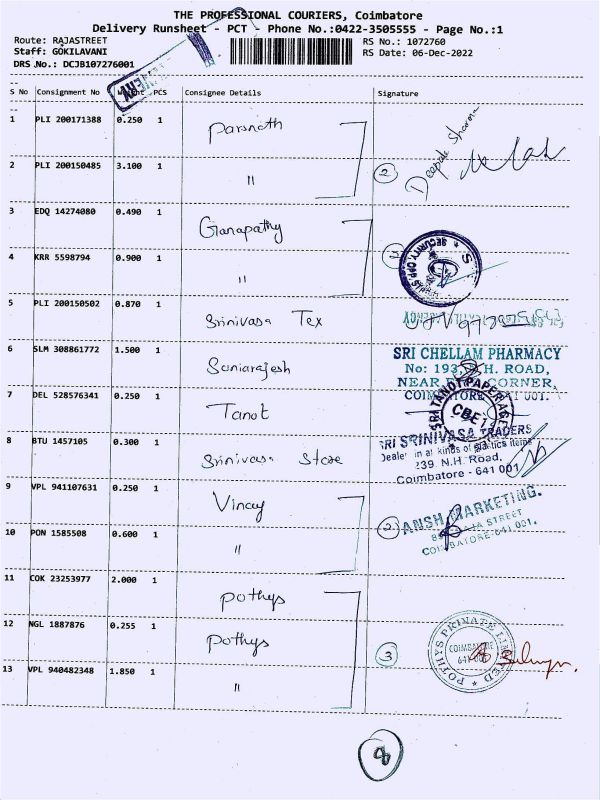 THE PROFESSIONAL COURIERS, Coimbatore
Delivery Runsheet - PCT - Phone No.:0422-3505555 - Page No.:1
Route: RAJASTREET
RS No.: 1072760
Staff: GOKILAVANI
RS Date: 06-Dec-2022
DRS No.: DCJB107276001
S No Consignment No Weight PCS Consignee Details Signature
1 PLI 200171388 0.250 1 Parsnath
Deepak Sharma
2 PLI 200150485 3.100 1 "
2
3 EDQ 14274080 0.490 1 Ganapathy
4 KRR 5598794 0.900 1 "
5 PLI 200150502 0.870 1 Srinivasa Tex
6 SLM 308861772 1.500 1 Soniarajesh
SRI CHELLAM PHARMACY
No: 193, N.H. ROAD,
CORNER,
7 DEL 528576341 0.250 1 Tanot
SRI TANOT PAPER AGE
CBE-1
8 BTU 1457105 0.300 1 Srinivasa Store
SRI SRINIVASA TRADERS
Dealer in al kinds of plastics items
239. N.H. Road,
Coimbatore - 641 001
9 VPL 941107631 0.250 1 Vinay
2
ANSH MARKETING.
RAJA STREET
COIMBATORE-641 001.
10 PON 1585508 0.600 1 "
11 COK 23253977 2.000 1 Pothys
12 NGL 1887876 0.255 1 Pothys
3
POTHYS PRIVATE LIMITED
COIMBATORE
13 VPL 940482348 1.850 1 "
8